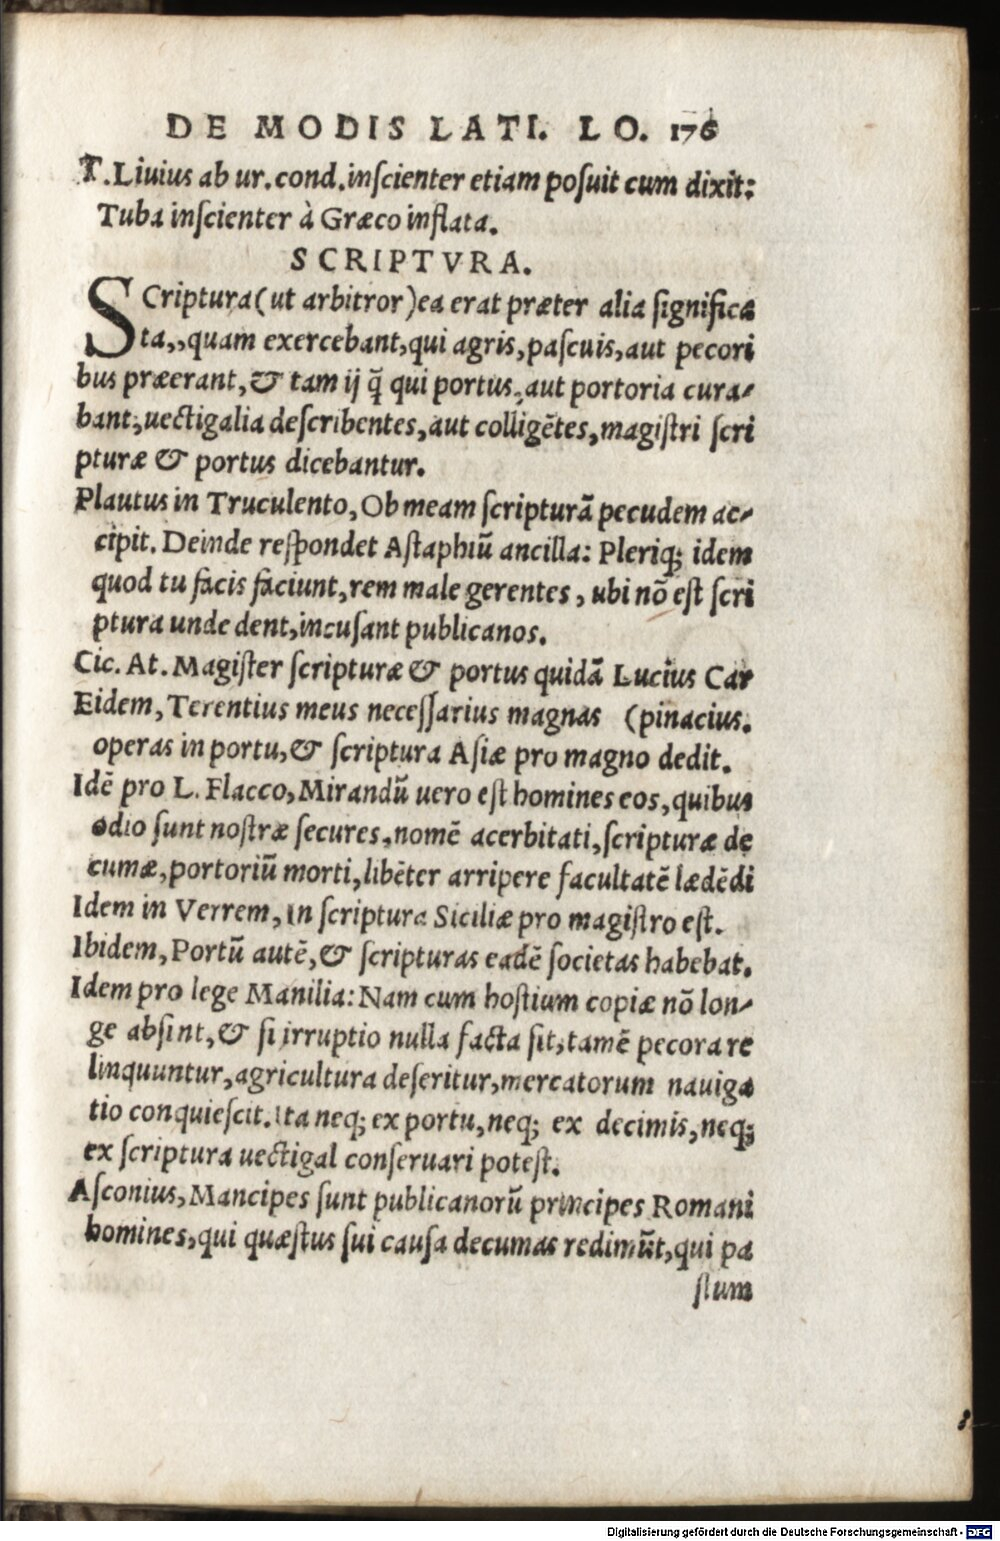 DE MODIS LATI. LO. 176
T. Liuius ab ur. cond. inscienter etiam posuit cum dixit:
Tuba inscienter à Græco inflata.
SCRIPTVRA.
SCriptura (ut arbitror) ea erat præter alia significa
ta,, quam exercebant, qui agris, pascuis, aut pecori
bus præerant, & tam ij q̃ qui portus, aut portoria cura-
bant; uectigalia describentes, aut colligẽtes, magistri scri
pturæ & portus dicebantur.
Plautus in Truculento, Ob meam scripturã pecudem ac-
cipit. Deinde respondet Astaphiũ ancilla: Pleriq; idem
quod tu facis faciunt, rem male gerentes, ubi nõ est scri
ptura unde dent, incusant publicanos.
Cic. At. Magister scripturæ & portus quidã Lucius Car
Eidem, Terentius meus necessarius magnas (pinacius.
operas in portu, & scriptura Asiæ pro magno dedit.
Idẽ pro L. Flacco, Mirandũ uero est homines eos, quibus
odio sunt nostræ secures, nomẽ acerbitati, scripturæ de
cumæ, portoriũ morti, libẽter arripere facultatẽ lædẽdi
Idem in Verrem, in scriptura Siciliæ pro magistro est.
Ibidem, Portũ autẽ, & scripturas eadẽ societas habebat.
Idem pro lege Manilia: Nam cum hostium copiæ nõ lon-
ge absint, & si irruptio nulla facta sit, tamẽ pecora re
linquuntur, agricultura deseritur, mercatorum nauiga
tio conquiescit. Ita neq; ex portu, neq; ex decimis, neq;
ex scriptura uectigal conseruari potest.
Asconius, Mancipes sunt publicanorũ principes Romani
homines, qui quæstus sui causa decumas redimũt, qui pa
stum
Digitalisierung gefördert durch die Deutsche Forschungsgemeinschaft - DFG